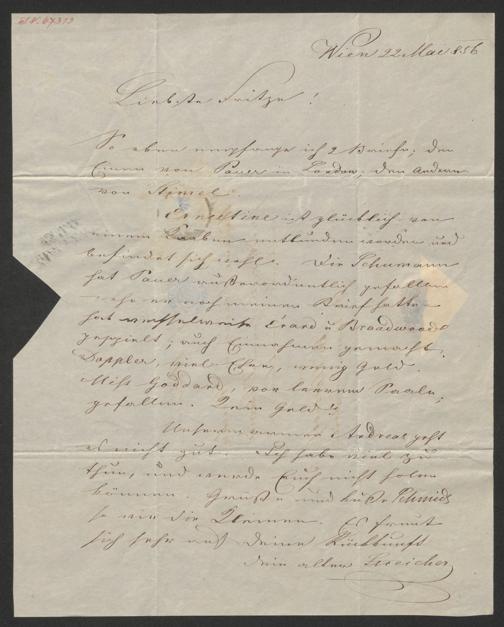 I.N. 67313
Wien 22 Mai 856
Liebste Fritze!
So eben empfange ich 2 Briefe, den
Einen von Pauer in London, den andern
von
Ernestine ist glücklich von
einem Knaben entbunden worden und
befindet sich wohl. Die Schumann
hat Pauer außerordentlich gefallen
ehe er noch meinen Brief hatte
hat wechselweise Erard u Broadwood
gespielt, auch Einnahmen gemacht.
Doppler, viel Ehre, wenig Geld.
Miss Goddard, vor leerem Saale,
gefallen. Kein Geld!
Unserem armen Andreas geht
es nicht gut. Ich habe viel zu
thun, und werde Euch nicht holen
können. Grüße und küße Schmids
so wie die Kleinen. Es freut
sich sehr auf deine Rückkunft
dein alter Streicher